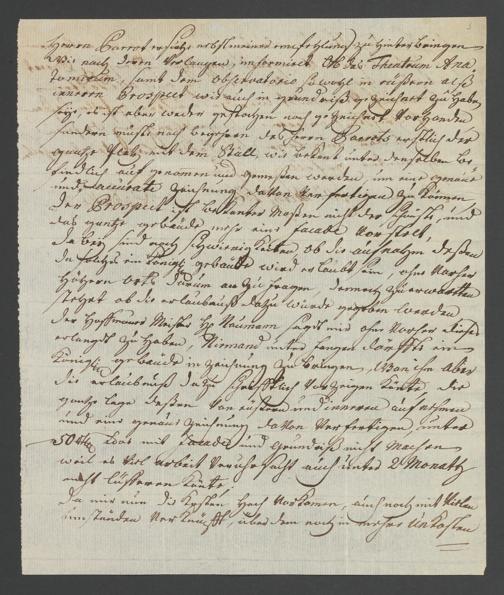 Herrn Parrot ersuche nebst meiner Empfehlung zu hinterbringen
Wie nach deren Verlangen, informiert ob das Theatrum Ana
tomicum, samt dem Observatorio sowohl in äußern alß
inneren Prospect wie auch in grundriß gezeichnet zu haben
seÿe, es ist aber weder gestochen noch gezeichnet vorhanden
sondern müste nach begehren des Herrn Parrots erstlich der
gantze Platz mit dem Stall, wie bekant unter denselben be
findlich auf genomen und gemessen werden, um eine genaue
und accurate zeichnung davon verfertigen zu können,
Der Prospect ist bekanter maßen nicht der schönste, und
das gantze gebäude mehr eine facade vorstelt,
da beÿ sind noch schwierigkeiten ob die aufnahm deßen
da solches ein Königl: gebäude wird erlaubt sein, ohne vorher
höhern orts darum an zu fragen, demnach zu erwartten
stehet ob die erlaubniß dazu würde gegeben werden
der Hoffbaumeister H: Naumann sagte mir ohne vorher dieses
erlangt zu haben, Niemand unter fangen dörffte ein
Königl: gebäude in zeichnung zu bringen, Wan ihm aber
die erlaubniß dazu schrifftlich vorzeigen könte, die
gantze lage deßen von äußern und inneren aufnehmen
und eine genaue zeichnung davon verfertigen unter
50 rthl das mit facade und grundriß nicht machen
weil es viel arbeit verursacht auch unter 2 Monatte
nicht lieffern könte,
da mir nun die Kosten hoch vorkomen, auch noch mit vielen
umständen verknüpfft, über dem noch in mehr unkosten